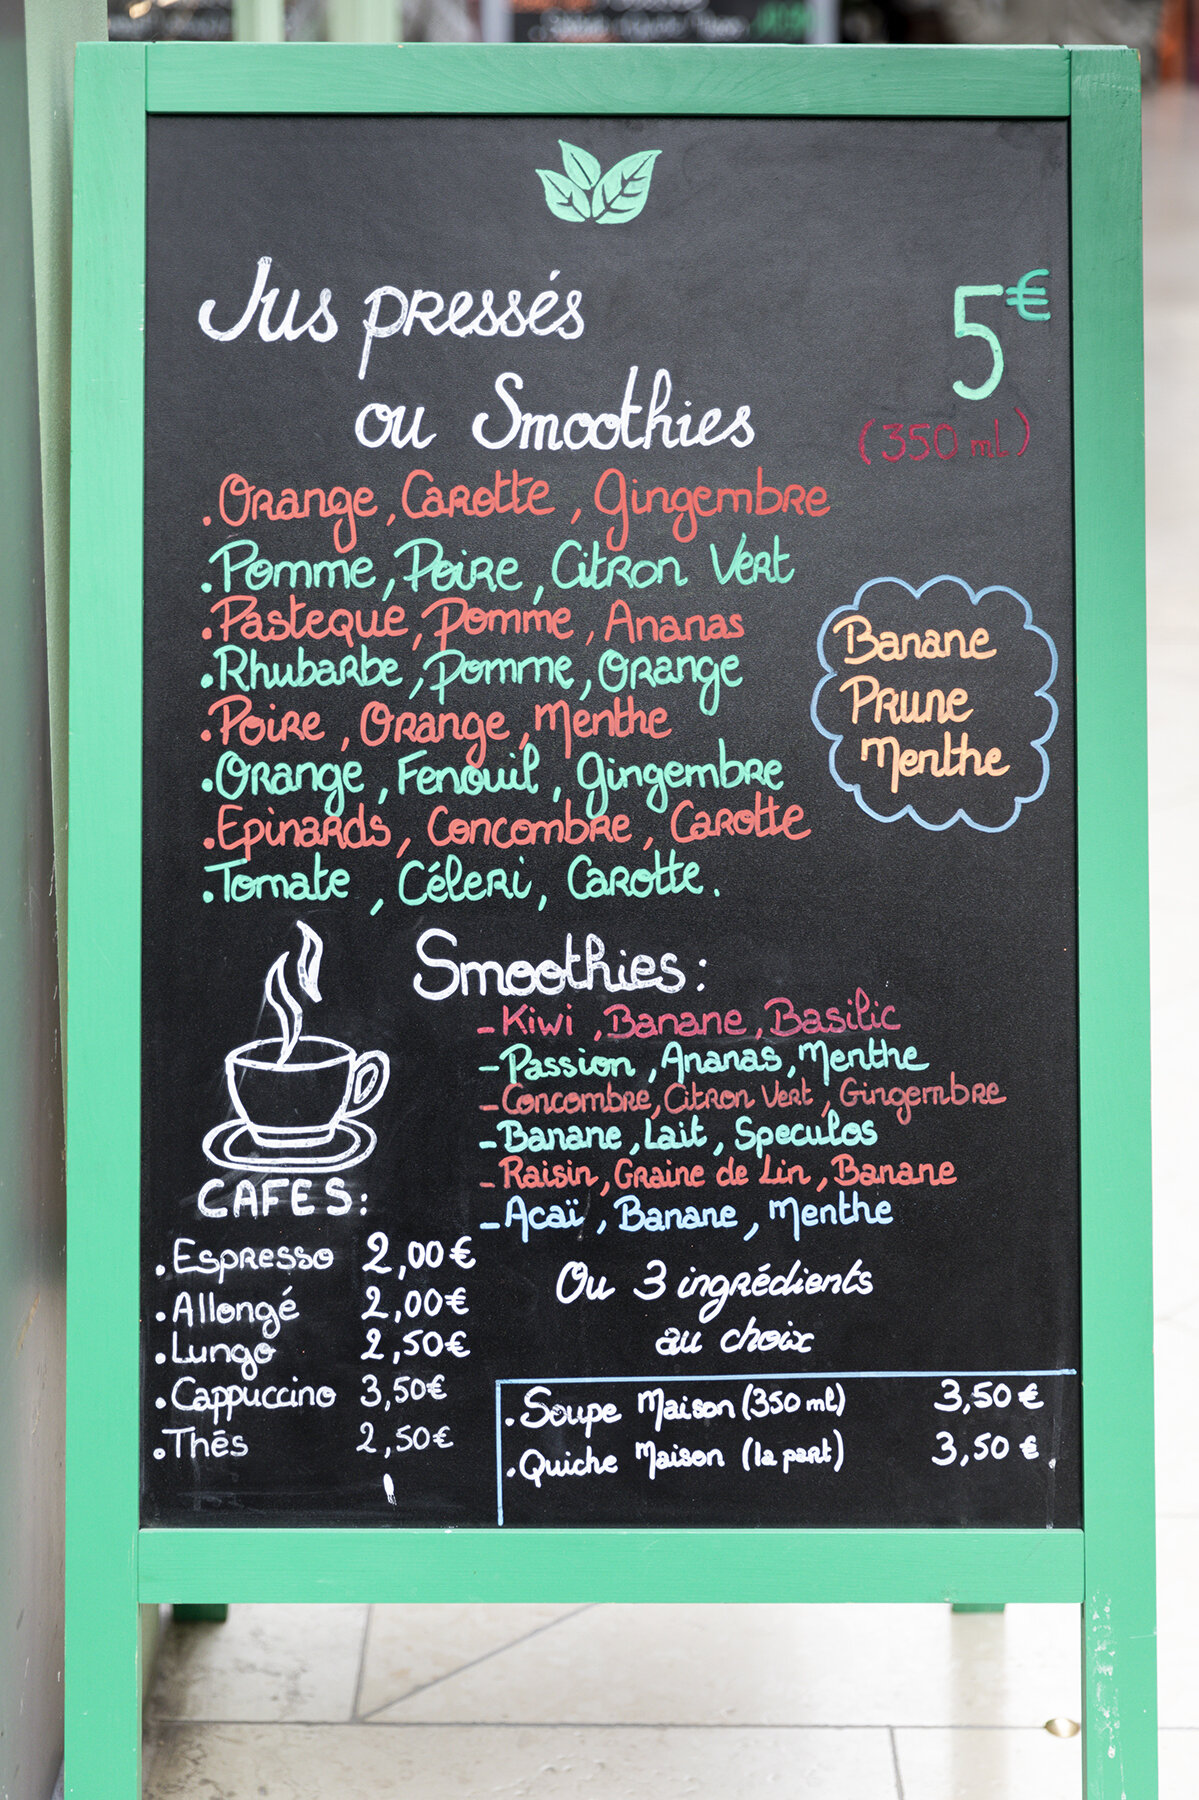 Jus pressés
5€
ou Smoothies
(350 ml)
. Orange, Carotte, Gingembre
. Pomme, Poire, Citron Vert
. Pasteque, Pomme, Ananas
. Rhubarbe, Pomme, Orange
. Poire, Orange, Menthe
. Orange, Fenouil, Gingembre
. Epinards, Concombre, Carotte
. Tomate, Céleri, Carotte.
Banane
Prune
Menthe
Smoothies:
- Kiwi, Banane, Basilic
- Passion, Ananas, Menthe
- Concombre, Citron Vert, Gingembre
- Banane, Lait, Speculos
- Raisin, Graine de Lin, Banane
- Acaï, Banane, Menthe
Ou 3 ingrédients
au choix
CAFES:
. Espresso 2,00€
. Allongé 2,00€
. Lungo 2,50€
. Cappuccino 3,50€
. Thés 2,50€
. Soupe Maison (350 ml) 3,50€
. Quiche Maison (la part) 3,50€